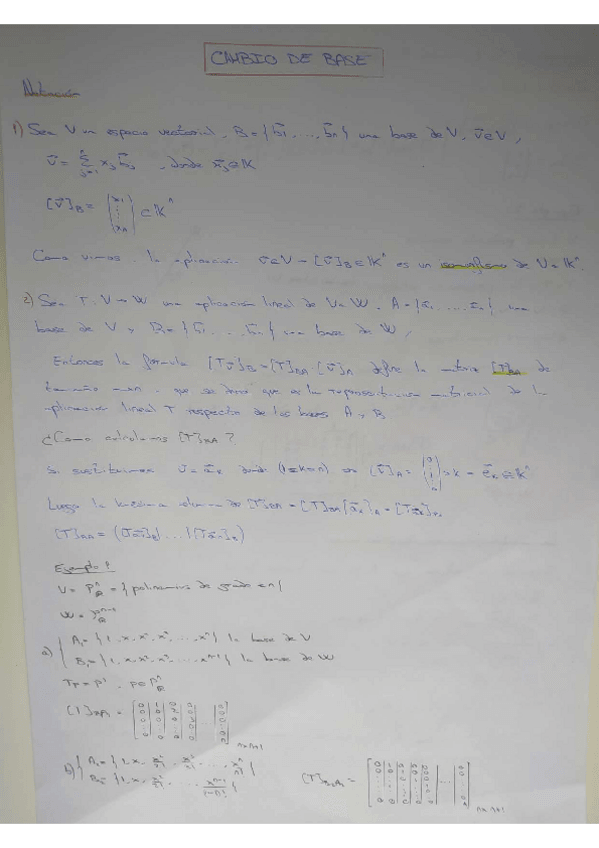 CAMBIO DE BASE
Notación
1) Sea V un espacio vectorial, B = { b⃗1, ..., b⃗n } una base de V, v⃗ ∈ V,
v⃗ = Σ xj b⃗j , donde xj ∈ K
[v⃗]B = (x1 ⋮ xn) ∈ K^n
Como vimos, la aplicación v⃗ ∈ V → [v⃗]B ∈ K^n es un isomorfismo de V a K^n.
2) Sea T: V → W una aplicación lineal de V a W, A = { a⃗1, ..., a⃗n }, una
base de V y B = { b⃗1, ..., b⃗n } una base de W,
Entonces la fórmula [Tv⃗]B = [T]BA · [v⃗]A define la matriz [T]BA de
tamaño m×n, que se dice que es la representación matricial de la
aplicación lineal T respecto de las bases A y B
¿Cómo calculamos [T]BA?
Si sustituimos v⃗ = a⃗k donde (1≤k≤n) [v⃗]A = = e⃗k ∈ K^n
Luego la k-ésima columna de [T]BA = [T]BA [a⃗k]A = [Ta⃗k]B
[T]BA = ([Ta⃗1]B ... [Ta⃗n]B)
Ejemplo 1
V = P^n = { polinomios de grado ≤ n }
W = P^n-1
a) { A1 = { 1, x, x², x³, ..., x^n } la base de V
B1 = { 1, x, x², x³, ..., x^n-1 } la base de W
Tp = p', p ∈ P^n
[T]BA =
n×n+1
b) { A2 = { 1, x, x²/2!, x³/3!, ..., x^n/n! }
B2 = { 1, x, ..., }
[T]B2A2 =
n×n+1